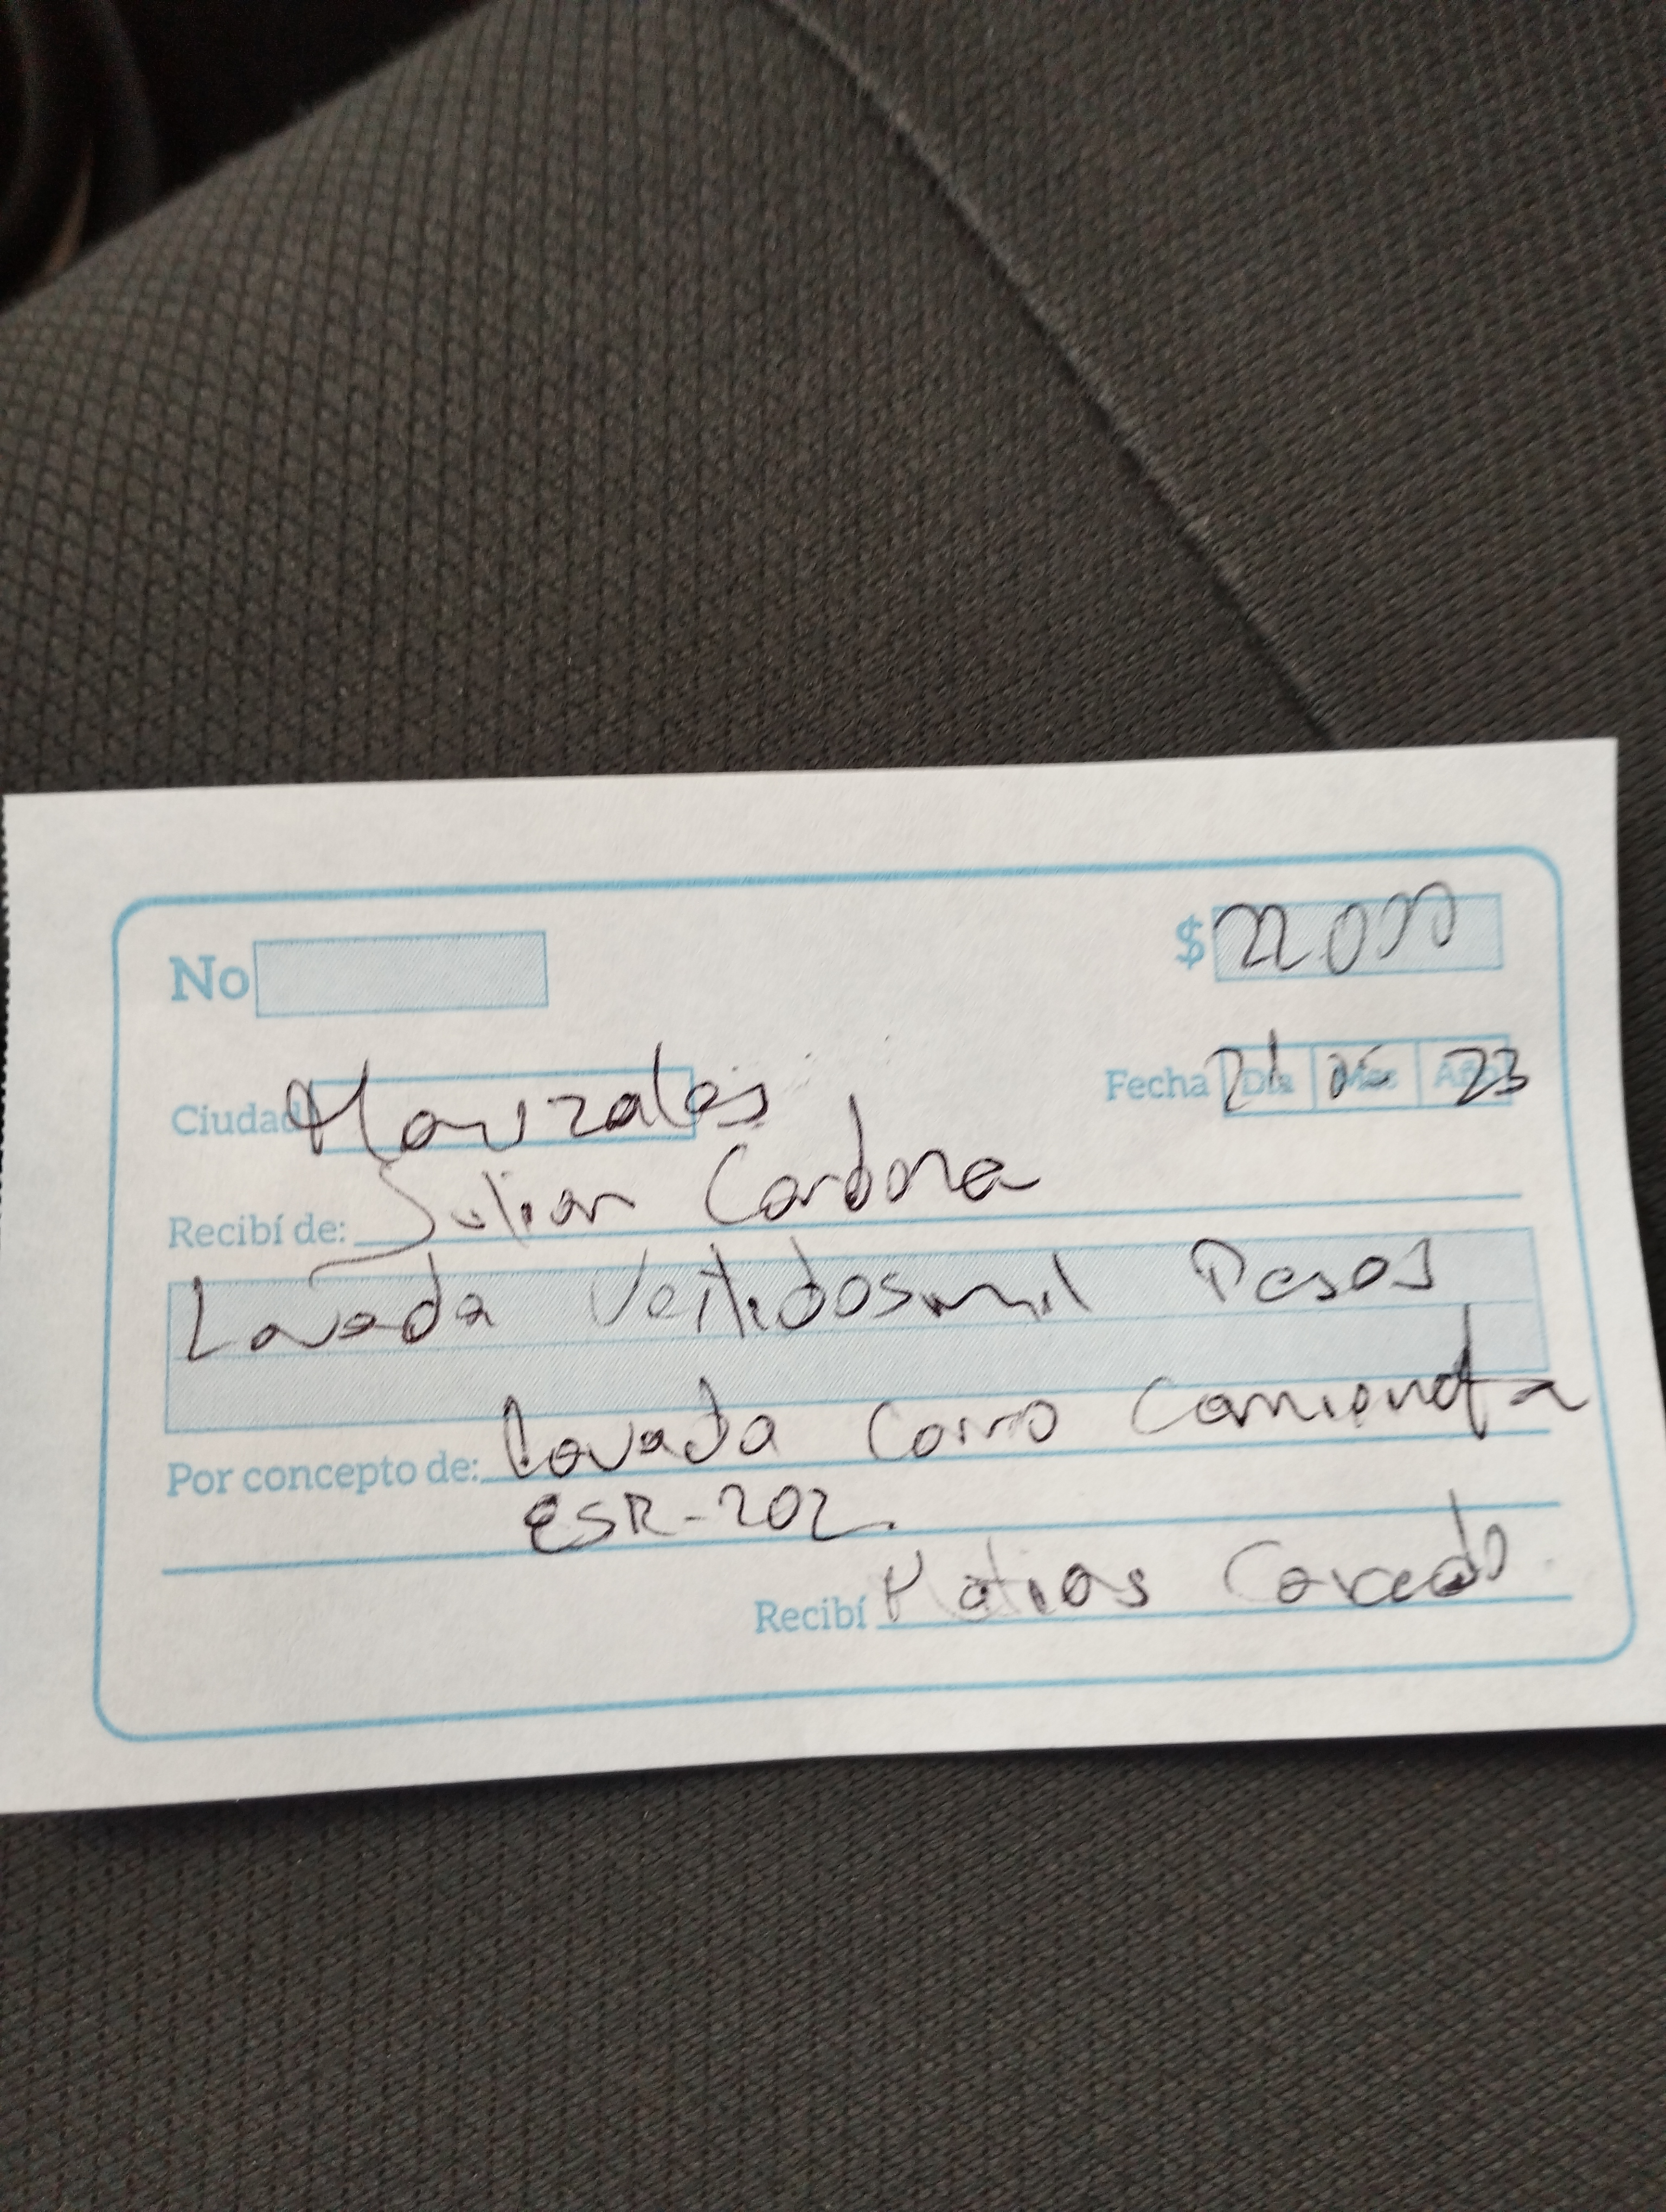 No $ 22.000
Ciudad Manizales Fecha 21 Día Mes Año 23
Recibí de: Julian Cardona
Lavada Veitidosmil Pesos
Por concepto de: Lavada Carro Camioneta
ESR-202.
Recibí Matias